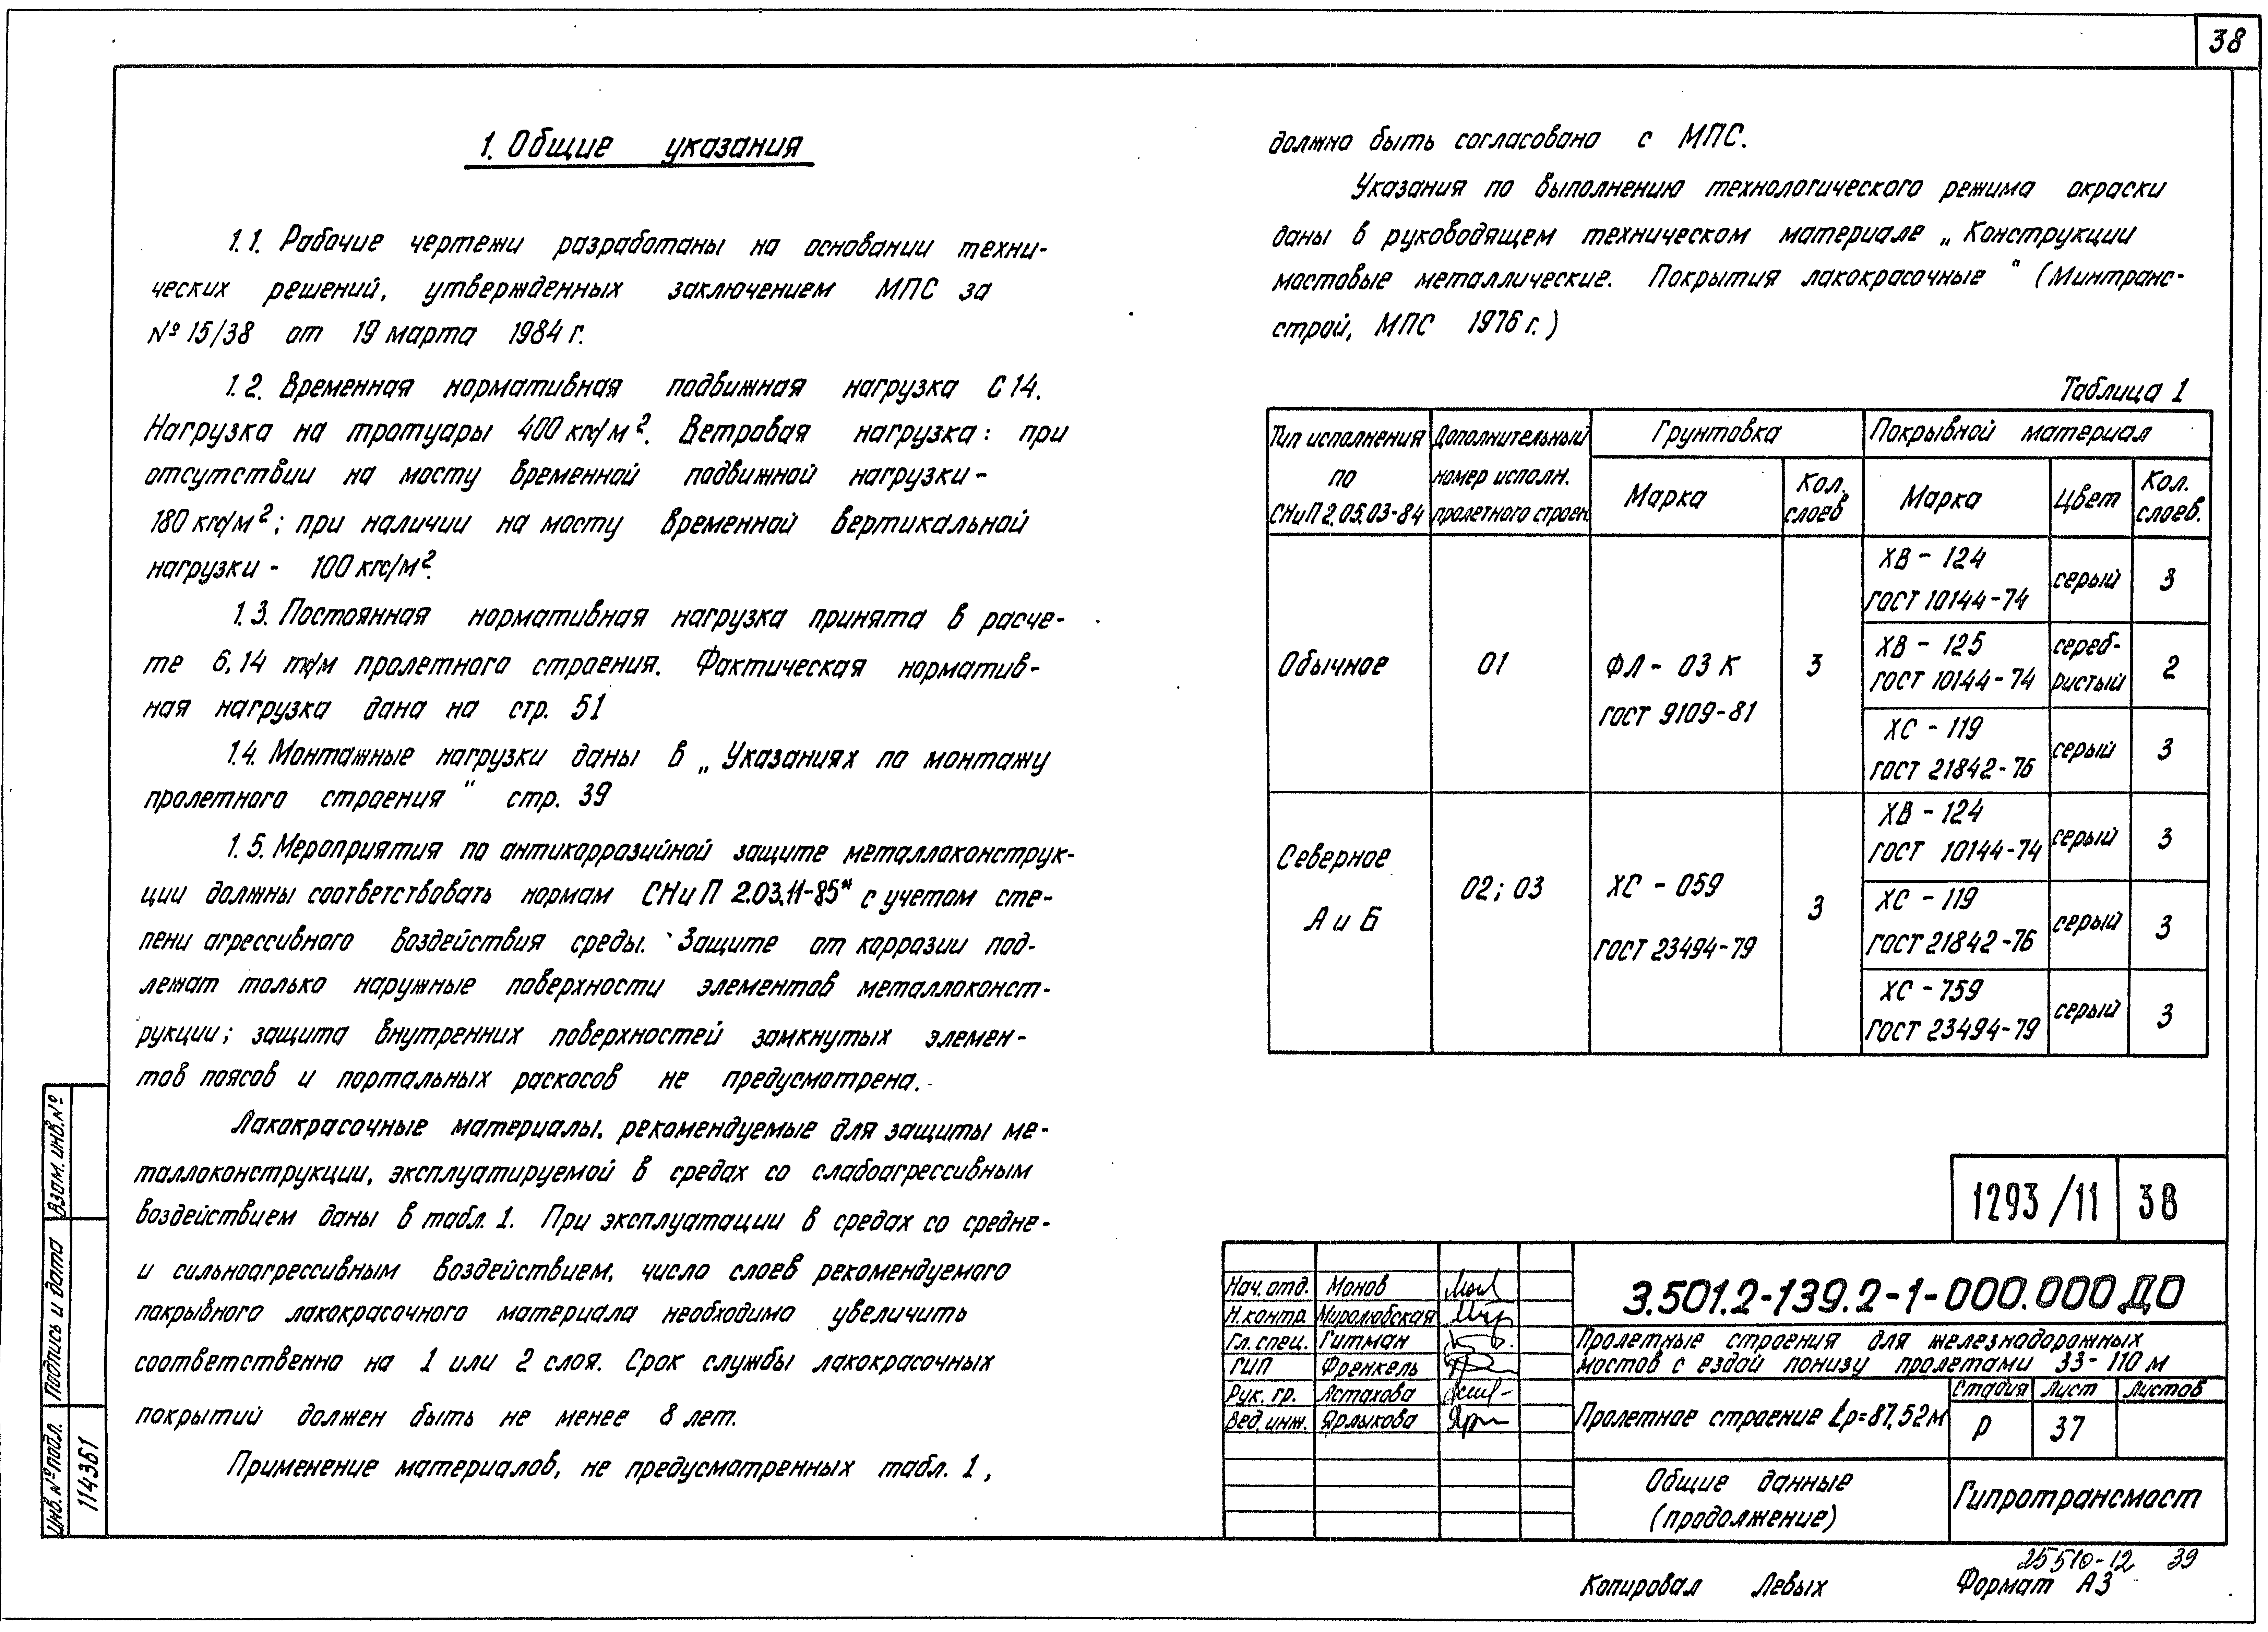 38
1. Общие указания
1.1. Рабочие чертежи разработаны на основании техни-
ческих решений, утвержденных заключением МПС за
№ 15/38 от 19 марта 1984 г.
1.2. Временная нормативная подвижная нагрузка С14.
Нагрузка на тротуары 400 кгс/м². Ветровая нагрузка: при
отсутствии на мосту временной подвижной нагрузки -
180 кгс/м²; при наличии на мосту временной вертикальной
нагрузки - 100 кгс/м².
1.3. Постоянная нормативная нагрузка принята в расче-
те 6,14 тс/м пролетного строения. Фактическая норматив-
ная нагрузка дана на стр. 51
1.4. Монтажные нагрузки даны в „Указаниях по монтажу
пролетного строения“ стр. 39
1.5. Мероприятия по антикоррозийной защите металлоконструк-
ции должны соответствовать нормам СНиП 2.03.11-85* с учетом сте-
пени агрессивного воздействия среды. Защите от коррозии под-
лежат только наружные поверхности элементов металлоконст-
рукции; защита внутренних поверхностей замкнутых элемен-
тов поясов и портальных раскосов не предусмотрена.
Лакокрасочные материалы, рекомендуемые для защиты ме-
таллоконструкции, эксплуатируемой в средах со слабоагрессивным
воздействием даны в табл. 1. При эксплуатации в средах со средне-
и сильноагрессивным воздействием, число слоев рекомендуемого
покрывного лакокрасочного материала необходимо увеличить
соответственно на 1 или 2 слоя. Срок службы лакокрасочных
покрытий должен быть не менее 8 лет.
Применение материалов, не предусмотренных табл. 1,
должно быть согласовано с МПС.
Указания по выполнению технологического режима окраски
даны в руководящем техническом материале „Конструкции
мостовые металлические. Покрытия лакокрасочные“ (Минтранс-
строй, МПС 1976 г.)
Таблица 1
Тип исполнения Дополнительный Грунтовка Покрывной материал
по номер исполн. Марка Кол. Марка Цвет Кол.
СНиП 2.05.03-84 пролетного строен. слоев слоев.
ХВ - 124 серый 3
ГОСТ 10144-74
Обычное 01 ФЛ - 03 К 3 ХВ - 125 сереб- 2
ГОСТ 9109-81 ГОСТ 10144-74 ристый
ХС - 119 серый 3
ГОСТ 21842-76
ХВ - 124 серый 3
ГОСТ 10144-74
Северное 02; 03 ХС - 059 3 ХС - 119 серый 3
А и Б ГОСТ 23494-79 ГОСТ 21842-76
ХС - 759 серый 3
ГОСТ 23494-79
1293/11 38
3.501.2-139.2-1-000.000 ДО
Нач. отд. Монов
Н. контр. Миролюбская
Гл. спец. Гитман
ГИП Френкель
Рук. гр. Астахова
Вед. инж. Ярлыкова
Пролетные строения для железнодорожных
мостов с ездой понизу пролетами 33-110 м
Пролетное строение Lр=87,52м
Стадия Лист Листов
Р 37
Общие данные
(продолжение)
Гипротрансмост
25510-12 39
Копировал Левых Формат А3
Взам. инв. №
Подпись и дата
Инв. № подл.
114361